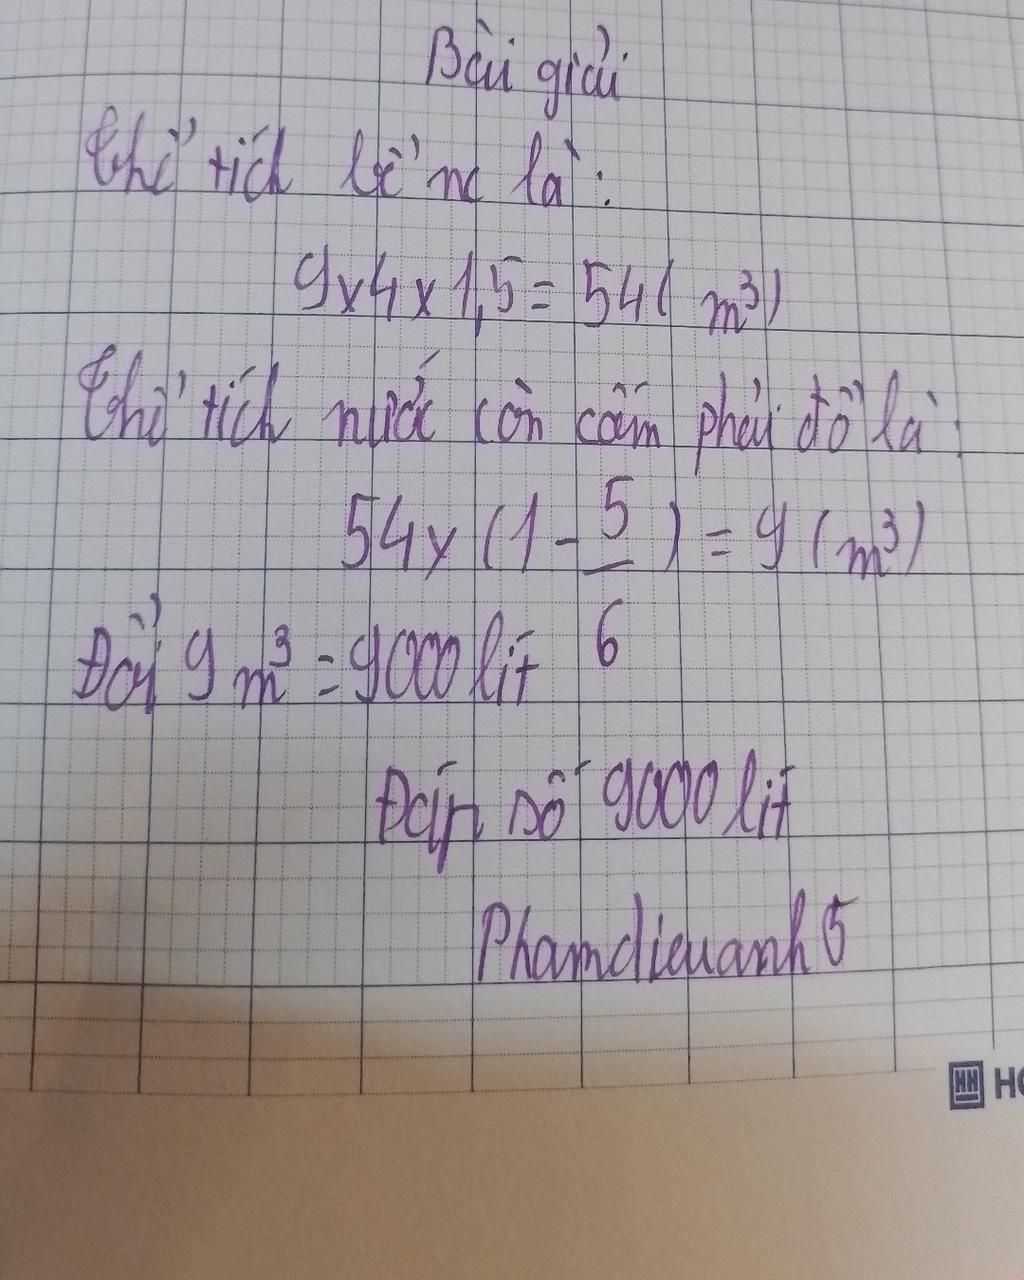 Bài giải
Thể tích bể nc là:
9x4x1,5= 54( m³)
Thể tích nước còn cầm phải đổ là:
54x (1 - 5/6) = 9 (m³)
Đổi 9 m³ = 9000 lít
Đáp số 9000 lít
Phamdieuanh 5
HH HO